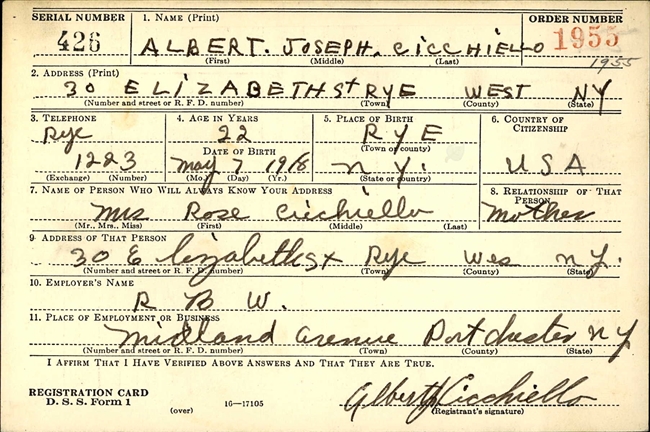 SERIAL NUMBER 1. NAME (Print) ORDER NUMBER
426 ALBERT. JOSEPH. CICCHIELLO 1955
(First) (Middle) (Last) 1955
2. ADDRESS (Print)
30 ELIZABETH St RYE WEST NY
(Number and street or R. F. D. number) (Town) (County) (State)
3. TELEPHONE 4. AGE IN YEARS 5. PLACE OF BIRTH 6. COUNTRY OF CITIZENSHIP
Rye 22 RYE
DATE OF BIRTH (Town or county)
1223 May 7 1918 N Y. USA
(Exchange) (Number) (Mo.) (Day) (Yr.) (State or country)
7. NAME OF PERSON WHO WILL ALWAYS KNOW YOUR ADDRESS 8. RELATIONSHIP OF THAT PERSON
Mrs Rose Cicchiello Mother
(Mr., Mrs., Miss) (First) (Middle) (Last)
9. ADDRESS OF THAT PERSON
30 Elizabeth St Rye Wes N.Y.
(Number and street or R. F. D. number) (Town) (County) (State)
10. EMPLOYER'S NAME
R B W.
11. PLACE OF EMPLOYMENT OR BUSINESS
Midland Avenue Portchester NY
(Number and street or R. F. D. number) (Town) (County) (State)
I AFFIRM THAT I HAVE VERIFIED ABOVE ANSWERS AND THAT THEY ARE TRUE.
REGISTRATION CARD
D. S. S. Form 1 (over) 16—17105 Albert J Cicchiello
(Registrant's signature)